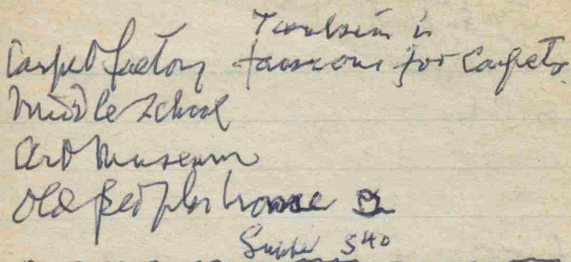 is
Carpet factory famous for Carpets
Middle School
Art Museum
Old peoples home
Supper 540